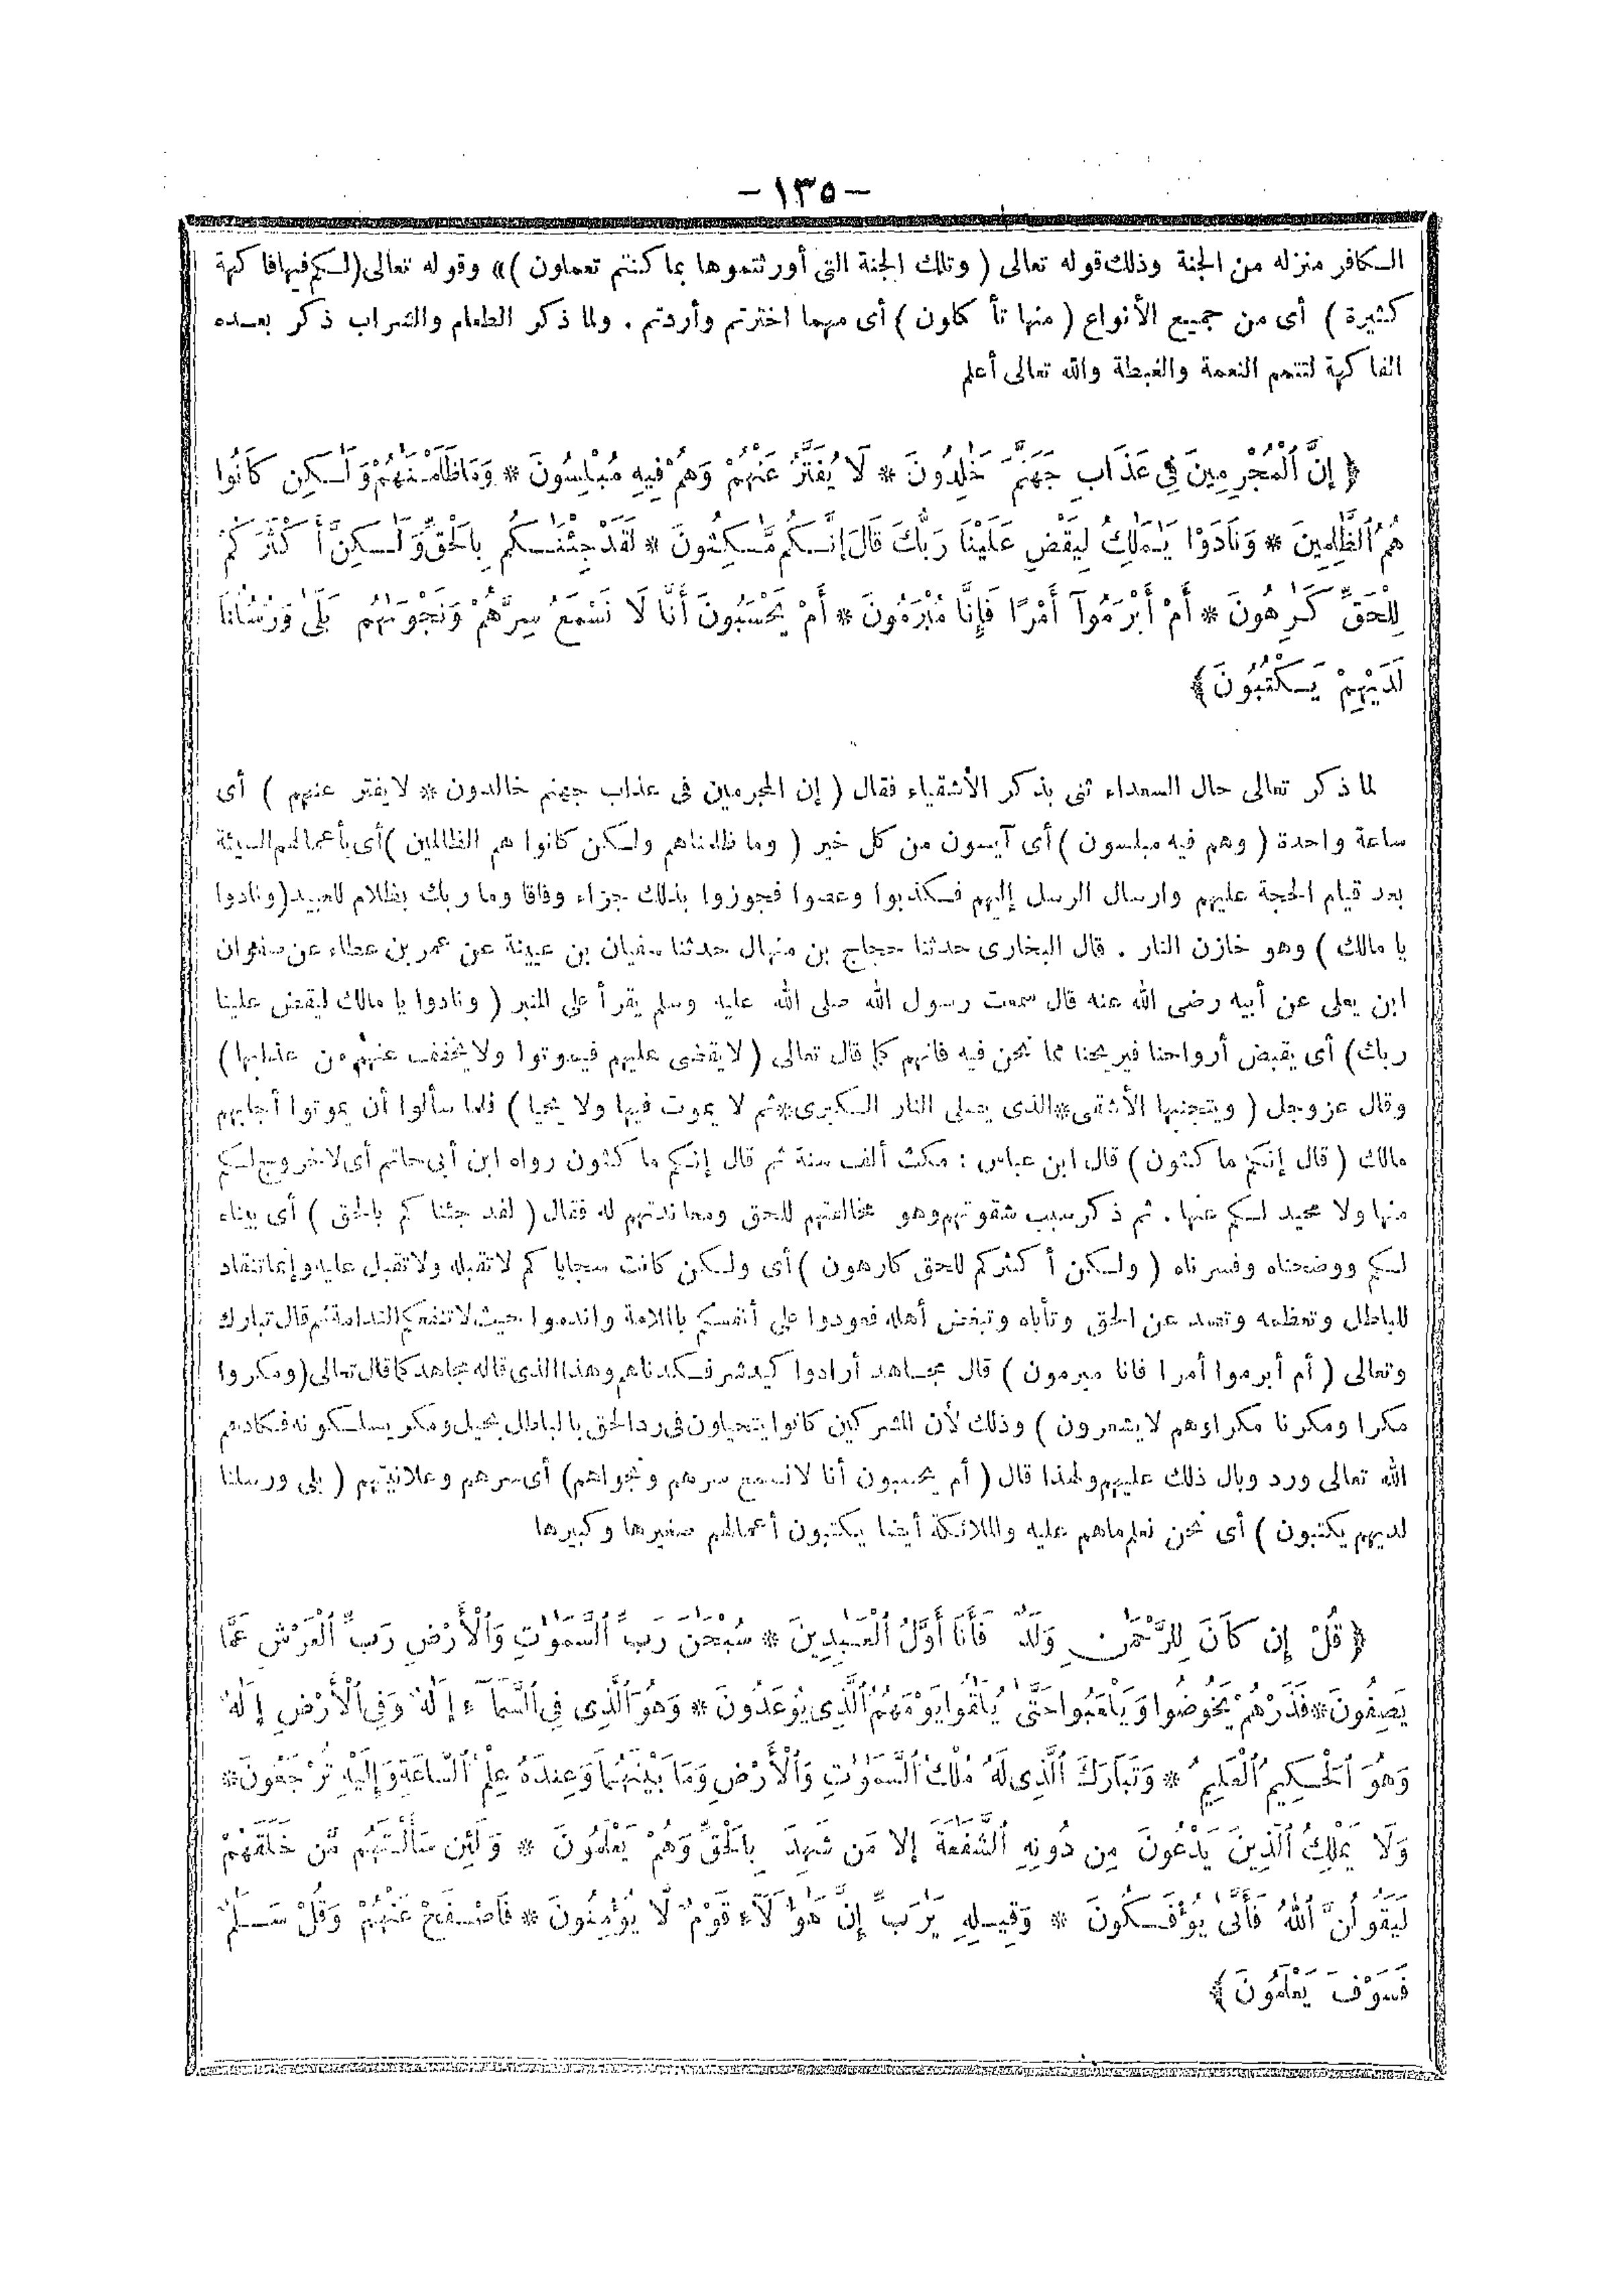 — ١٣٥ —
الكافر منزله من الجنة وذلك قوله تعالى ( وتلك الجنة التى أورثتموها بما كنتم تعملون )» وقوله تعالى ( لكم فيها فاكهة
كثيرة ) أى من جميع الأنواع ( منها تأكلون ) أى مهما اخترتم وأردتم . ولما ذكر الطعام والشراب ذكر بعده
الفاكهة لتتم النعمة والغبطة والله تعالى أعلم
﴿ إِنَّ ٱلْمُجْرِمِينَ فِى عَذَابِ جَهَنَّمَ خَٰلِدُونَ * لَا يُفَتَّرُ عَنْهُمْ وَهُمْ فِيهِ مُبْلِسُونَ * وَمَا ظَلَمْنَٰهُمْ وَلَٰكِن كَانُوا
هُمُ ٱلظَّٰلِمِينَ * وَنَادَوْا يَٰمَٰلِكُ لِيَقْضِ عَلَيْنَا رَبُّكَ قَالَ إِنَّكُم مَّٰكِثُونَ * لَقَدْ جِئْنَٰكُم بِالْحَقِّ وَلَٰكِنَّ أَكْثَرَكُمْ
لِلْحَقِّ كَٰرِهُونَ * أَمْ أَبْرَمُوآ أَمْرًا فَإِنَّا مُبْرِمُونَ * أَمْ يَحْسَبُونَ أَنَّا لَا نَسْمَعُ سِرَّهُمْ وَنَجْوَىٰهُم بَلَىٰ وَرُسُلُنَا
لَدَيْهِمْ يَكْتُبُونَ ﴾
لما ذكر تعالى حال السعداء ثنى بذكر الأشقياء فقال ( إن المجرمين فى عذاب جهنم خالدون * لا يفتر عنهم ) أى
ساعة واحدة ( وهم فيه مبلسون ) أى آيسون من كل خير ( وما ظلمناهم ولكن كانوا هم الظالمين ) أى بأعمالهم السيئة
بعد قيام الحجة عليهم وارسال الرسل إليهم فكذبوا وعصوا فجوزوا بذلك جزاء وفاقا وما ربك بظلام للعبيد ( ونادوا
يا مالك ) وهو خازن النار . قال البخارى حدثنا حجاج بن منهال حدثنا سفيان بن عيينة عن عمر بن عطاء عن صفوان
ابن يعلى عن أبيه رضى الله عنه قال سمعت رسول الله صلى الله عليه وسلم يقرأ على المنبر ( ونادوا يا مالك ليقض علينا
ربك ) أى يقبض أرواحنا فيريحنا مما نحن فيه فانهم كما قال تعالى ( لا يقضى عليهم فيموتوا ولا يخفف عنهم من عذابها )
وقال عز وجل ( ويتجنبها الأشقى * الذى يصلى النار الكبرى * ثم لا يموت فيها ولا يحيا ) فلما سألوا أن يموتوا أجابهم
مالك ( قال إنكم ماكثون ) قال ابن عباس : مكث ألف سنة ثم قال إنكم ماكثون رواه ابن أبى حاتم أى لا خروج لكم
منها ولا محيد لكم عنها . ثم ذكر سبب شقوتهم وهو مخالفتهم للحق ومعاندتهم له فقال ( لقد جئناكم بالحق ) أى بيناه
لكم ووضحناه وفسرناه ( ولكن أكثركم للحق كارهون ) أى ولكن كانت سجاياكم لا تقبله ولا تقبل عليه وإنما تنقاد
للباطل وتعظمه وتصد عن الحق وتأباه وتبغض أهله فعودوا على أنفسكم بالملامة واندموا حيث لا تنفعكم الندامة ثم قال تبارك
وتعالى ( أم أبرموا أمرا فانا مبرمون ) قال مجاهد أرادوا كيد شر فكدناهم وهذا الذى قاله مجاهد كما قال تعالى ( ومكروا
مكرا ومكرنا مكرا وهم لا يشعرون ) وذلك لأن المشركين كانوا يتحيلون فى رد الحق بالباطل بحيل ومكر يسلكونه فكادهم
الله تعالى ورد وبال ذلك عليهم ولهذا قال ( أم يحسبون أنا لا نسمع سرهم ونجواهم ) أى سرهم وعلانيتهم ( بلى ورسلنا
لديهم يكتبون ) أى نحن نعلم ماهم عليه والملائكة أيضا يكتبون أعمالهم صغيرها وكبيرها
﴿ قُلْ إِن كَانَ لِلرَّحْمَٰنِ وَلَدٌ فَأَنَا أَوَّلُ ٱلْعَٰبِدِينَ * سُبْحَٰنَ رَبِّ ٱلسَّمَٰوَٰتِ وَٱلْأَرْضِ رَبِّ ٱلْعَرْشِ عَمَّا
يَصِفُونَ * فَذَرْهُمْ يَخُوضُوا وَيَلْعَبُوا حَتَّىٰ يُلَٰقُوا يَوْمَهُمُ ٱلَّذِى يُوعَدُونَ * وَهُوَ ٱلَّذِى فِى ٱلسَّمَآءِ إِلَٰهٌ وَفِى ٱلْأَرْضِ إِلَٰهٌ
وَهُوَ ٱلْحَكِيمُ ٱلْعَلِيمُ * وَتَبَارَكَ ٱلَّذِى لَهُ مُلْكُ ٱلسَّمَٰوَٰتِ وَٱلْأَرْضِ وَمَا بَيْنَهُمَا وَعِندَهُ عِلْمُ ٱلسَّاعَةِ وَإِلَيْهِ تُرْجَعُونَ *
وَلَا يَمْلِكُ ٱلَّذِينَ يَدْعُونَ مِن دُونِهِ ٱلشَّفَٰعَةَ إِلَّا مَن شَهِدَ بِالْحَقِّ وَهُمْ يَعْلَمُونَ * وَلَئِن سَأَلْتَهُم مَّنْ خَلَقَهُمْ
لَيَقُولُنَّ ٱللَّهُ فَأَنَّىٰ يُؤْفَكُونَ * وَقِيلِهِ يَٰرَبِّ إِنَّ هَٰٓؤُلَآءِ قَوْمٌ لَّا يُؤْمِنُونَ * فَاصْفَحْ عَنْهُمْ وَقُلْ سَلَٰمٌ
فَسَوْفَ يَعْلَمُونَ ﴾